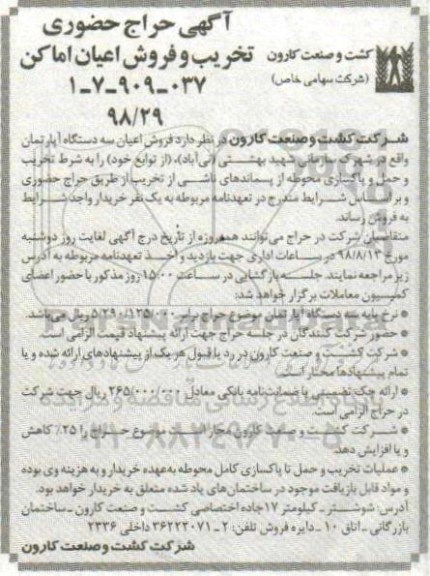 آگهی حراج حضوری
تخریب و فروش اعیان اماکن
۱-۷-۹۰۹-۰۳۷
۹۸/۲۹
کشت و صنعت کارون
(شرکت سهامی خاص)
شرکت کشت و صنعت کارون در نظر دارد فروش اعیان سه دستگاه آپارتمان
واقع در شهرک سازمانی شهید بهشتی (نی‌آباد)، (از توابع خود) را به شرط تخریب
و حمل و پاکسازی محوطه از پسماندهای ناشی از تخریب از طریق حراج حضوری
و بر اساس شرایط مندرج در تعهدنامه مربوطه به یک نفر خریدار واجد شرایط
به فروش رساند.
متقاضیان شرکت در حراج می‌توانند همه‌روزه از تأریخ درج آگهی لغایت روز دوشنبه
مورخ ۹۸/۸/۱۳ در ساعات اداری جهت بازدید و اخذ تعهدنامه مربوطه به آدرس
زیر مراجعه نمایند. جلسه بازگشایی در ساعت ۱۵:۰۰ روز مذکور با حضور اعضای
کمیسیون معاملات برگزار خواهد شد:
* نرخ پایه سه دستگاه آپارتمان موضوع حراج برابر ۵/۲۹۰/۱۲۵/۰۰۰ ریال می‌باشد.
* حضور شرکت کنندگان در جلسه حراج جهت ارائه پیشنهاد قیمت الزامی است.
* شرکت کشت و صنعت کارون در رد یا قبول هر یک از پیشنهادهای ارائه شده و یا
تمام پیشنهادها مختار است.
* ارائه چک تضمینی یا ضمانت‌نامه بانکی معادل ۲۶۵/۰۰۰/۰۰۰ ریال جهت شرکت
در حراج الزامی است.
* شرکت کشت و صنعت کارون مختار است موضوع حراج را ۲۵٪ کاهش
و یا افزایش دهد.
* عملیات تخریب و حمل تا پاکسازی کامل محوطه به‌عهده خریدار و به هزینه وی بوده
و مواد قابل بازیافت موجود در ساختمان‌های یاد شده متعلق به خریدار خواهد بود.
آدرس: شوشتر - کیلومتر ۱۷ جاده اختصاصی کشت و صنعت کارون - ساختمان
بازرگانی - اتاق ۱۰ - دایره فروش تلفن: ۲ - ۳۶۲۲۲۰۷۱ داخلی ۲۳۳۶
شرکت کشت و صنعت کارون
۰۲۱-۸۸۳۴۹۶۷۰-۵